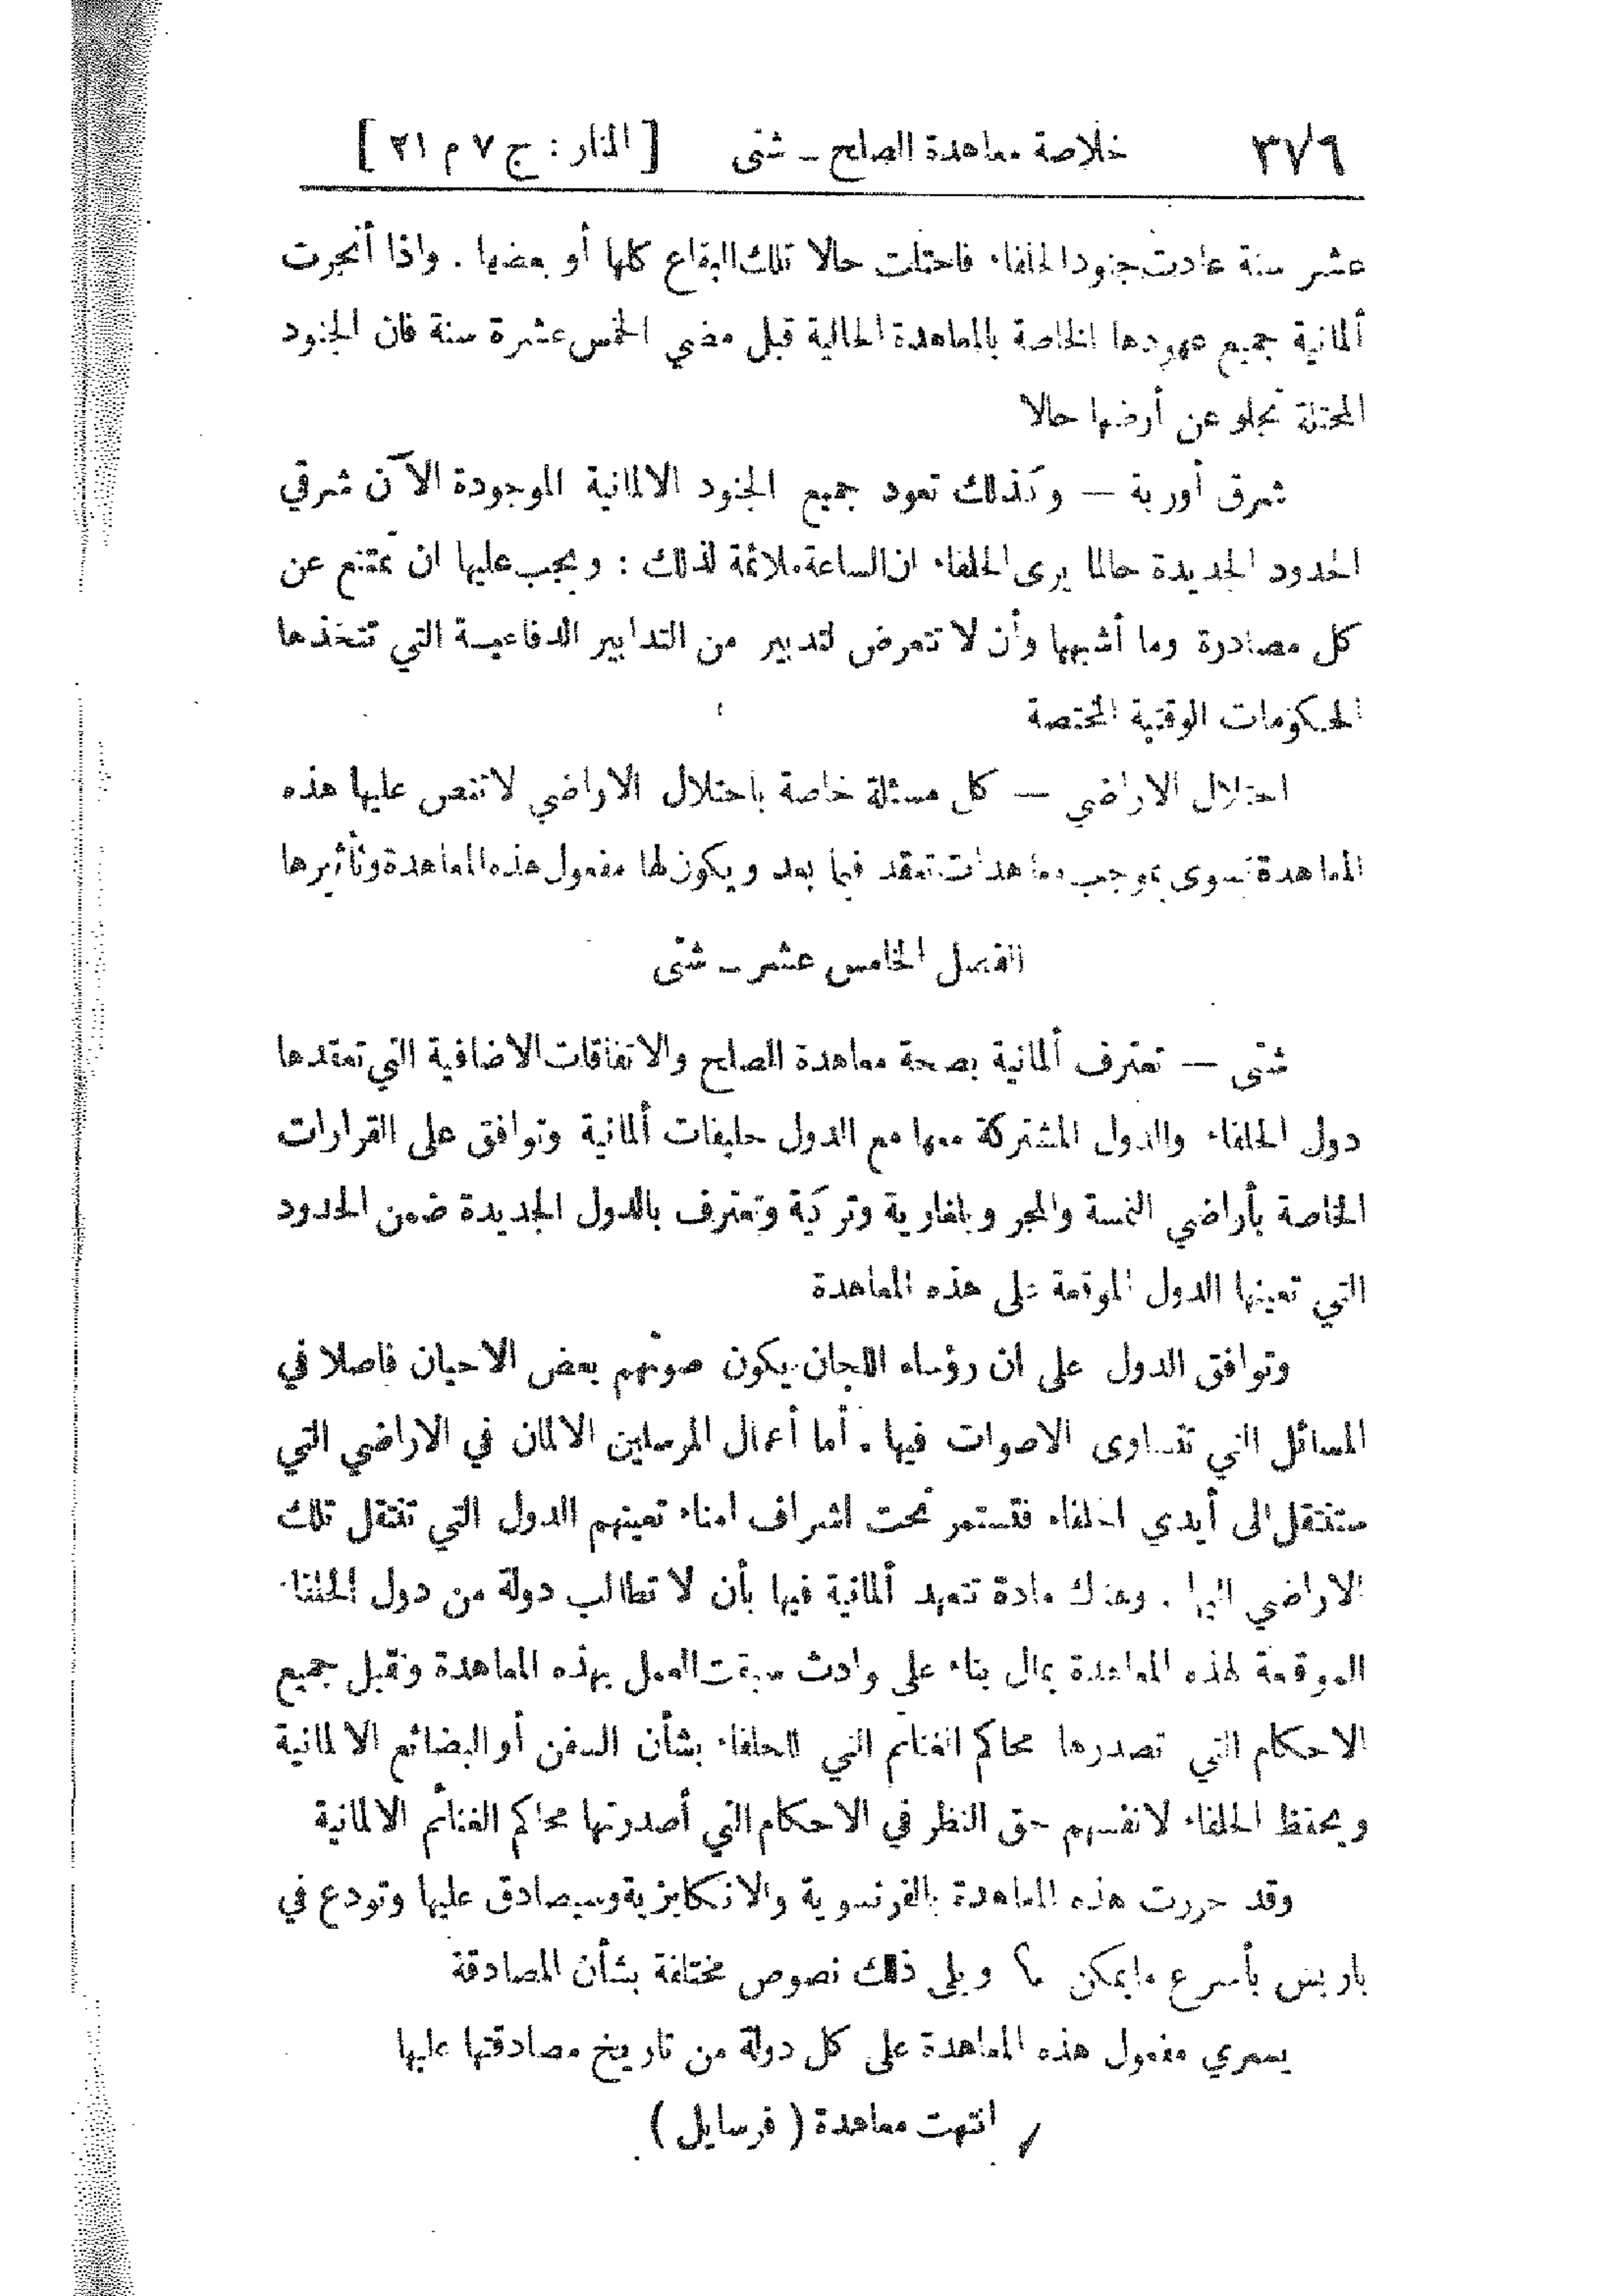 ٣٧٦ خلاصة معاهدة الصلح ــ شتى [ المنار : ج ٧ م ٢١ ]
عشر سنة عادت جنود الحلفاء فاحتلت حالا تلك البقاع كلها أو بعضها . واذا أنجزت
ألمانية جميع عهودها الخاصة بالمعاهدة الحالية قبل مضي الخمس عشرة سنة فان الجنود
المحتلة تجلو عن أرضها حالا
شرق أوربة — وكذلك تعود جميع الجنود الالمانية الموجودة الآن شرقي
الحدود الجديدة حالما يرى الحلفاء ان الساعة ملائمة لذلك : ويجب عليها ان تمتنع عن
كل مصادرة وما أشبهها وأن لا تتعرض لتدبير من التدابير الدفاعية التي تتخذها
الحكومات الوقتية المختصة
احتلال الاراضي — كل مسئلة خاصة باحتلال الاراضي لاتنص عليها هذه
المعاهدة تسوى بموجب معاهدات تعقد فيما بعد ويكون لها مفعول هذه المعاهدة وتأثيرها
الفصل الخامس عشر ــ شتى
شتى — تعترف ألمانية بصحة معاهدة الصلح والاتفاقات الاضافية التي تعقدها
دول الحلفاء والدول المشتركة معها مع الدول حليفات ألمانية وتوافق على القرارات
الخاصة بأراضي النمسة والمجر وبلغارية وتركية وتعترف بالدول الجديدة ضمن الحدود
التي تعينها الدول الموقعة على هذه المعاهدة
وتوافق الدول على ان رؤساء اللجان يكون صوتهم بعض الاحيان فاصلا في
المسائل التي تتساوى الاصوات فيها . أما أعمال المرسلين الالمان في الاراضي التي
ستنتقل الى أيدي الحلفاء فتستمر تحت اشراف امناء تعينهم الدول التي تنتقل تلك
الاراضي اليها . وهناك مادة تتعهد ألمانية فيها بأن لا تطالب دولة من دول الحلفاء
الموقعة لهذه المعاهدة بمال بناء على وادث سبقت العمل بهذه المعاهدة وتقبل جميع
الاحكام التي تصدرها محاكم الغنائم التي للحلفاء بشأن السفن أو البضائع الالمانية
ويحتفظ الحلفاء لانفسهم حق النظر في الاحكام التي أصدرتها محاكم الغنائم الالمانية
وقد حررت هذه المعاهدة بالفرنسوية والانكليزية وسيصادق عليها وتودع في
باريس بأسرع مايمكن ويلي ذلك نصوص مختلفة بشأن المصادقة
يسري مفعول هذه المعاهدة على كل دولة من تاريخ مصادقتها عليها
انتهت معاهدة ( فرسايل )